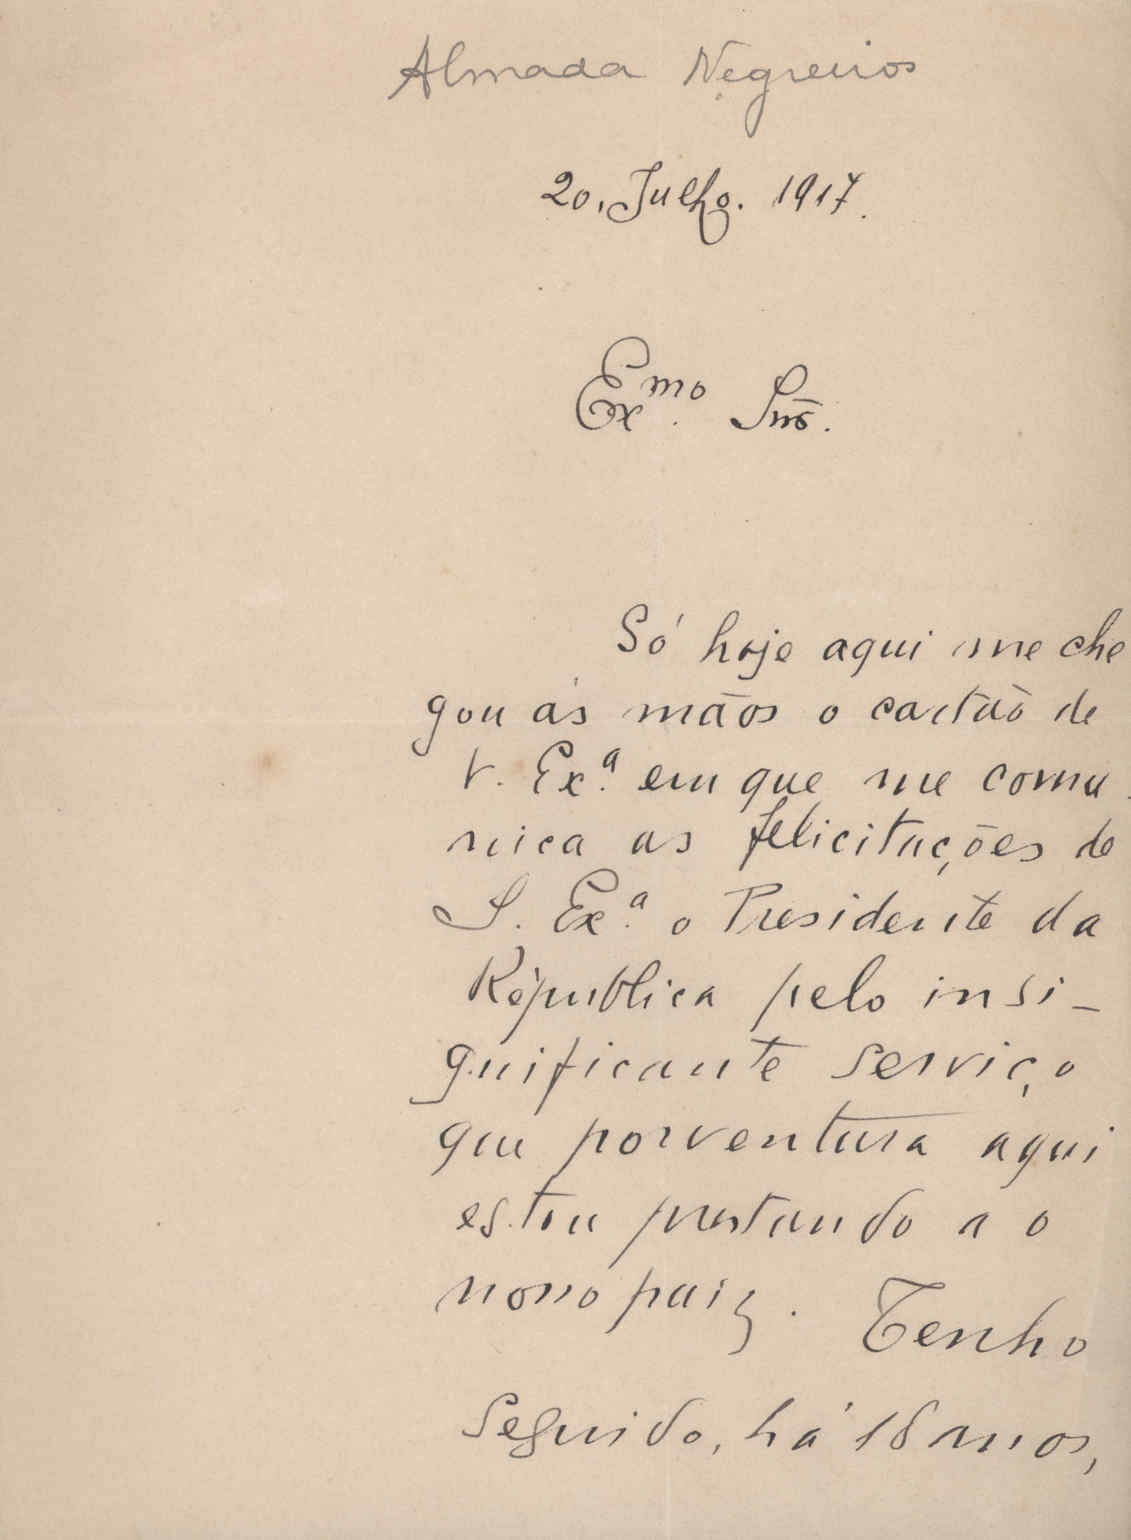 Almada Negreiros
20, Julho. 1917.
Exmo. Snr.
Só hoje aqui me che
gou ás mãos o cartão de
V. Exª. em que me comu-
nica as felicitações de
S. Exª. o Presidente da
Républica pelo insi-
gnificante serviço
que porventura aqui
estou prestando a o
nosso paiz. Tenho
seguido, há 18 anos,